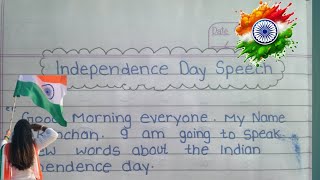 Date
Independence Day Speech
Good Morning everyone. My Name
I am going to speak
words about the Indian
day.